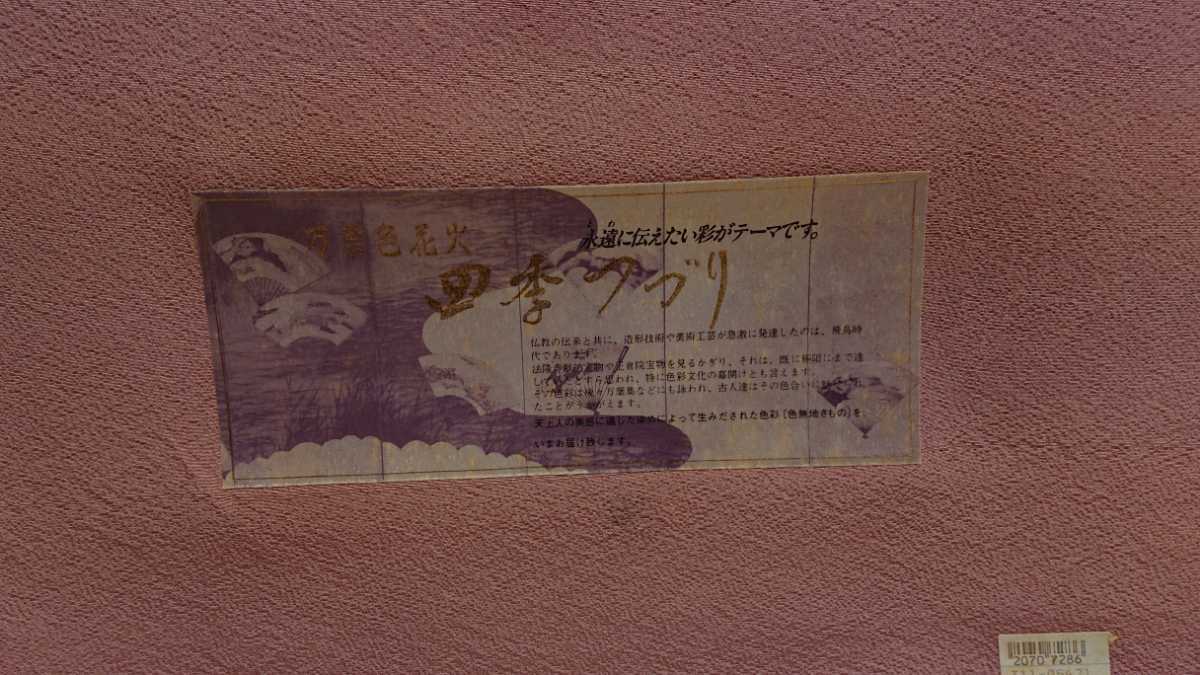 万葉色花火
とわ
永遠に伝えたい彩がテーマです。
四季つづり
仏教の伝来と共に、造形技術や美術工芸が急激に発達したのは、飛鳥時
代であります。
法隆寺の宝物や正倉院宝物を見るかぎり、それは、既に極限にまで達
したとすら思われ、特に色彩文化の幕開けとも言えます。
その色彩は後々万葉集などにも詠われ、古人達はその色合いに
たことがうかがえます。
天上人の美感に適した染めによって生みだされた色彩〔色無地きもの〕を、
いまお届け致します。
2070 7286